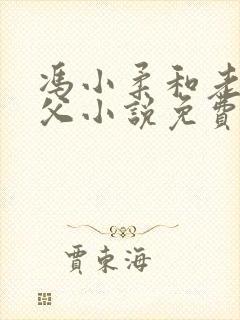 馮小柔和老
父小說免費
賈東海